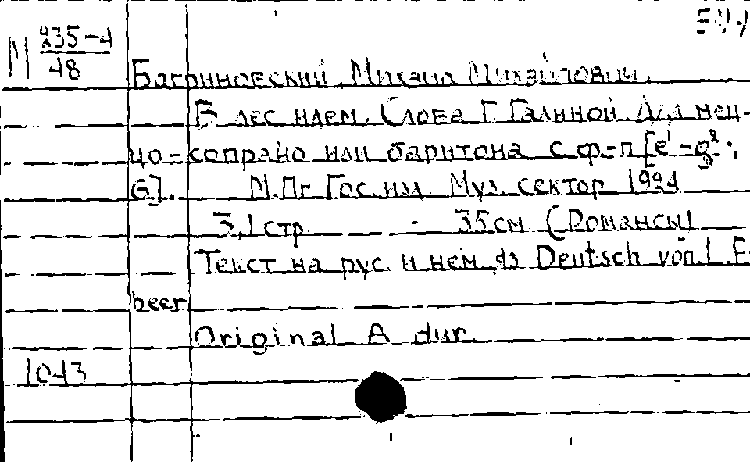 М 235-4
48
Багриновский, Михаил Михайлович.
В лес идем. Слова Г. Галиной. Для мец-
цо-сопрано или баритона с ф-п [e¹-g²;
G]. М.Пг. Гос. изд. Муз. сектор 1924
3,1 стр. 35см (Романсы)
Текст на рус. и нем. яз. Deutsch von
beer
Original A dur.
1043